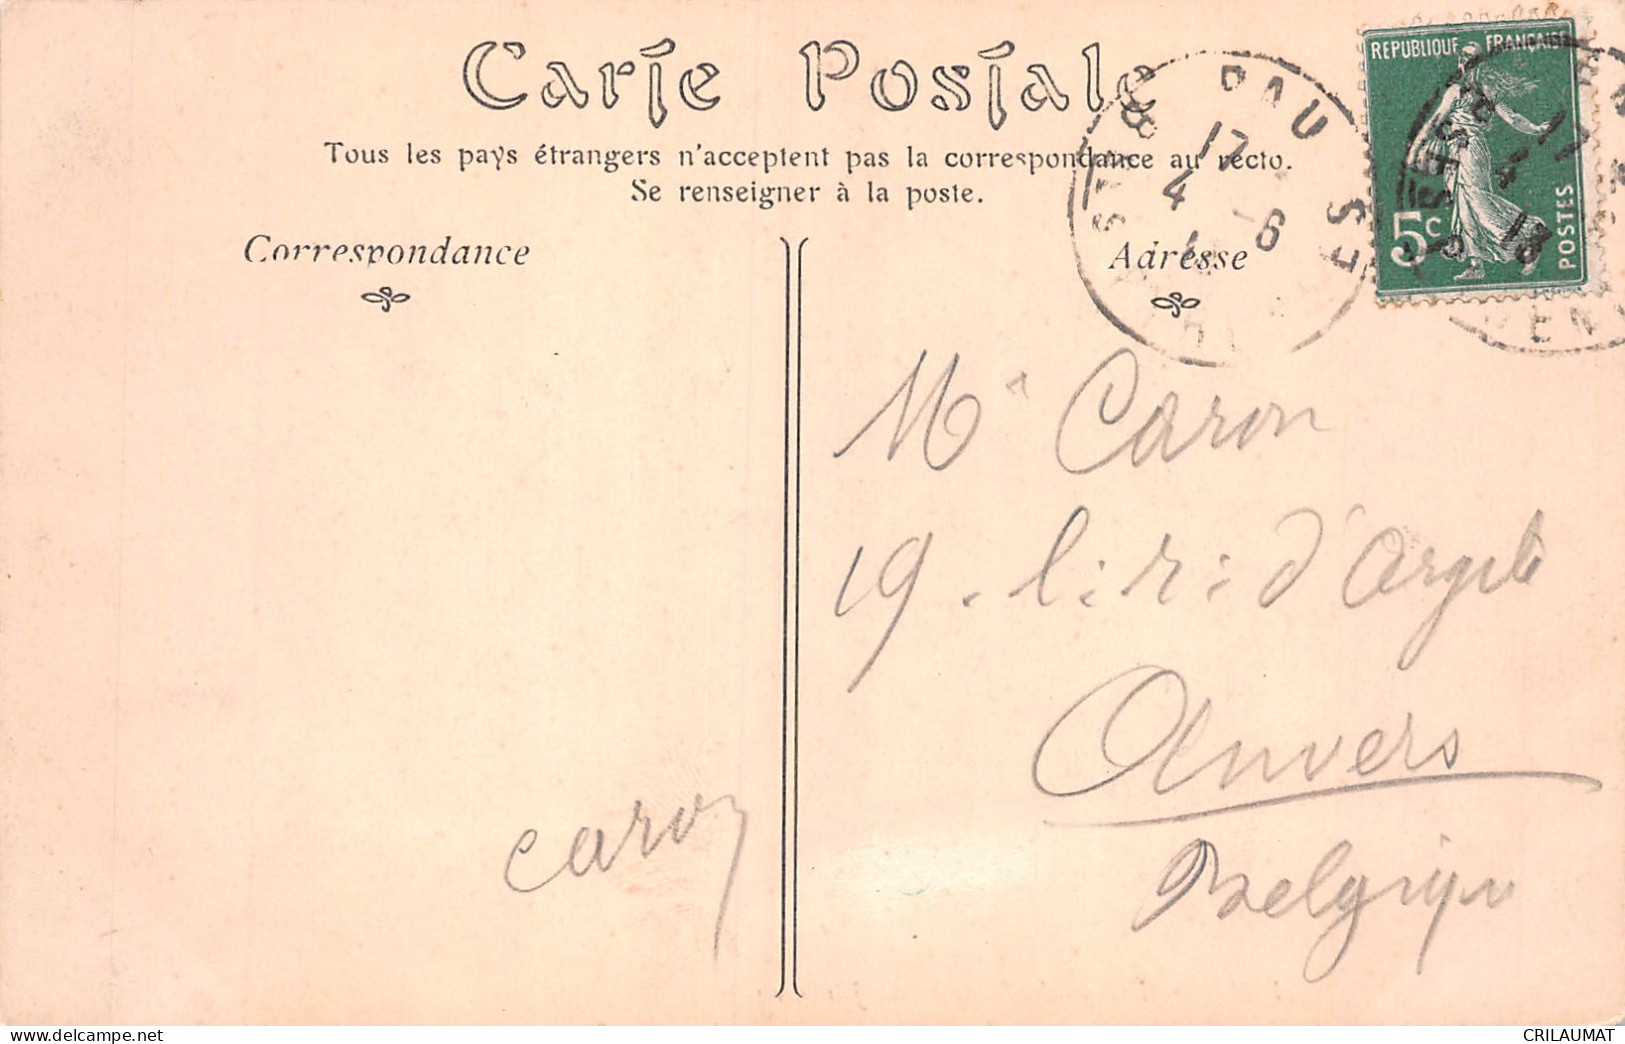 Carte Postale
Tous les pays étrangers n'acceptent pas la correspondance au recto.
Se renseigner à la poste.
Correspondance
Adresse
REPUBLIQUE FRANÇAISE
5c
POSTES
PAU
17
4
-6
13
Mr Caron
19. l: r: d'Argile
Anvers
Belgique
caron
www.delcampe.net
CRILAUMAT